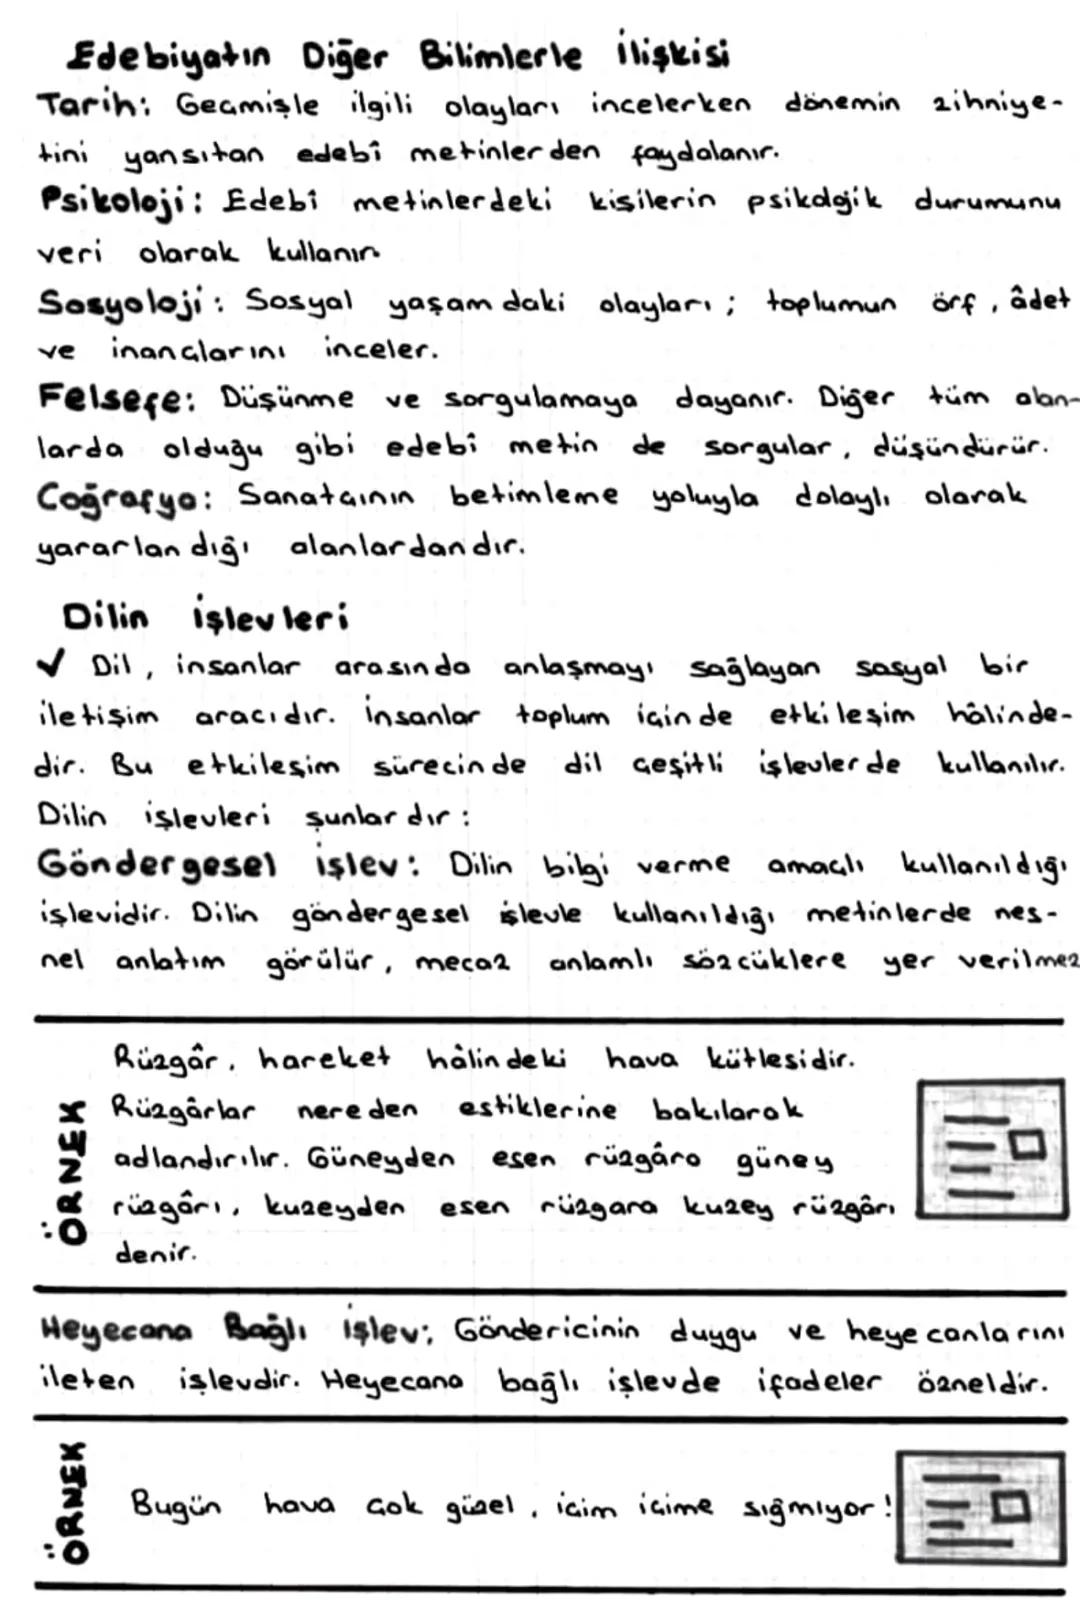 Edebiyatın Diğer Bilimlerle İlişkisi
Tarih: Geçmişle ilgili olayları incelerken dönemin zihniye-
tini yansıtan edebî metinlerden faydalanır.
Psikoloji: Edebî metinlerdeki kişilerin psikolojik durumunu
veri olarak kullanır.
Sosyoloji: Sosyal yaşamdaki olayları; toplumun örf, âdet
ve inançlarını inceler.
Felsefe: Düşünme ve sorgulamaya dayanır. Diğer tüm alan-
larda olduğu gibi edebî metin de sorgular, düşündürür.
Coğrafya: Sanatçının betimleme yoluyla dolaylı olarak
yararlandığı alanlardandır.
Dilin İşlevleri
✓ Dil, insanlar arasında anlaşmayı sağlayan sosyal bir
iletişim aracıdır. İnsanlar toplum içinde etkileşim hâlinde-
dir. Bu etkileşim sürecinde dil çeşitli işlevlerde kullanılır.
Dilin işlevleri şunlardır:
Göndergesel İşlev: Dilin bilgi verme amaçlı kullanıldığı
işlevidir. Dilin göndergesel işlevle kullanıldığı metinlerde nes-
nel anlatım görülür, mecaz anlamlı sözcüklere yer verilmez
ÖRNEK
Rüzgâr, hareket hâlindeki hava kütlesidir.
Rüzgârlar nereden estiklerine bakılarak
adlandırılır. Güneyden esen rüzgâra güney
rüzgârı, kuzeyden esen rüzgara kuzey rüzgârı
denir.
Heyecana Bağlı İşlev: Göndericinin duygu ve heyecanlarını
ileten işlevdir. Heyecana bağlı işlevde ifadeler özneldir.
ÖRNEK
Bugün hava çok güzel, içim içime sığmıyor!